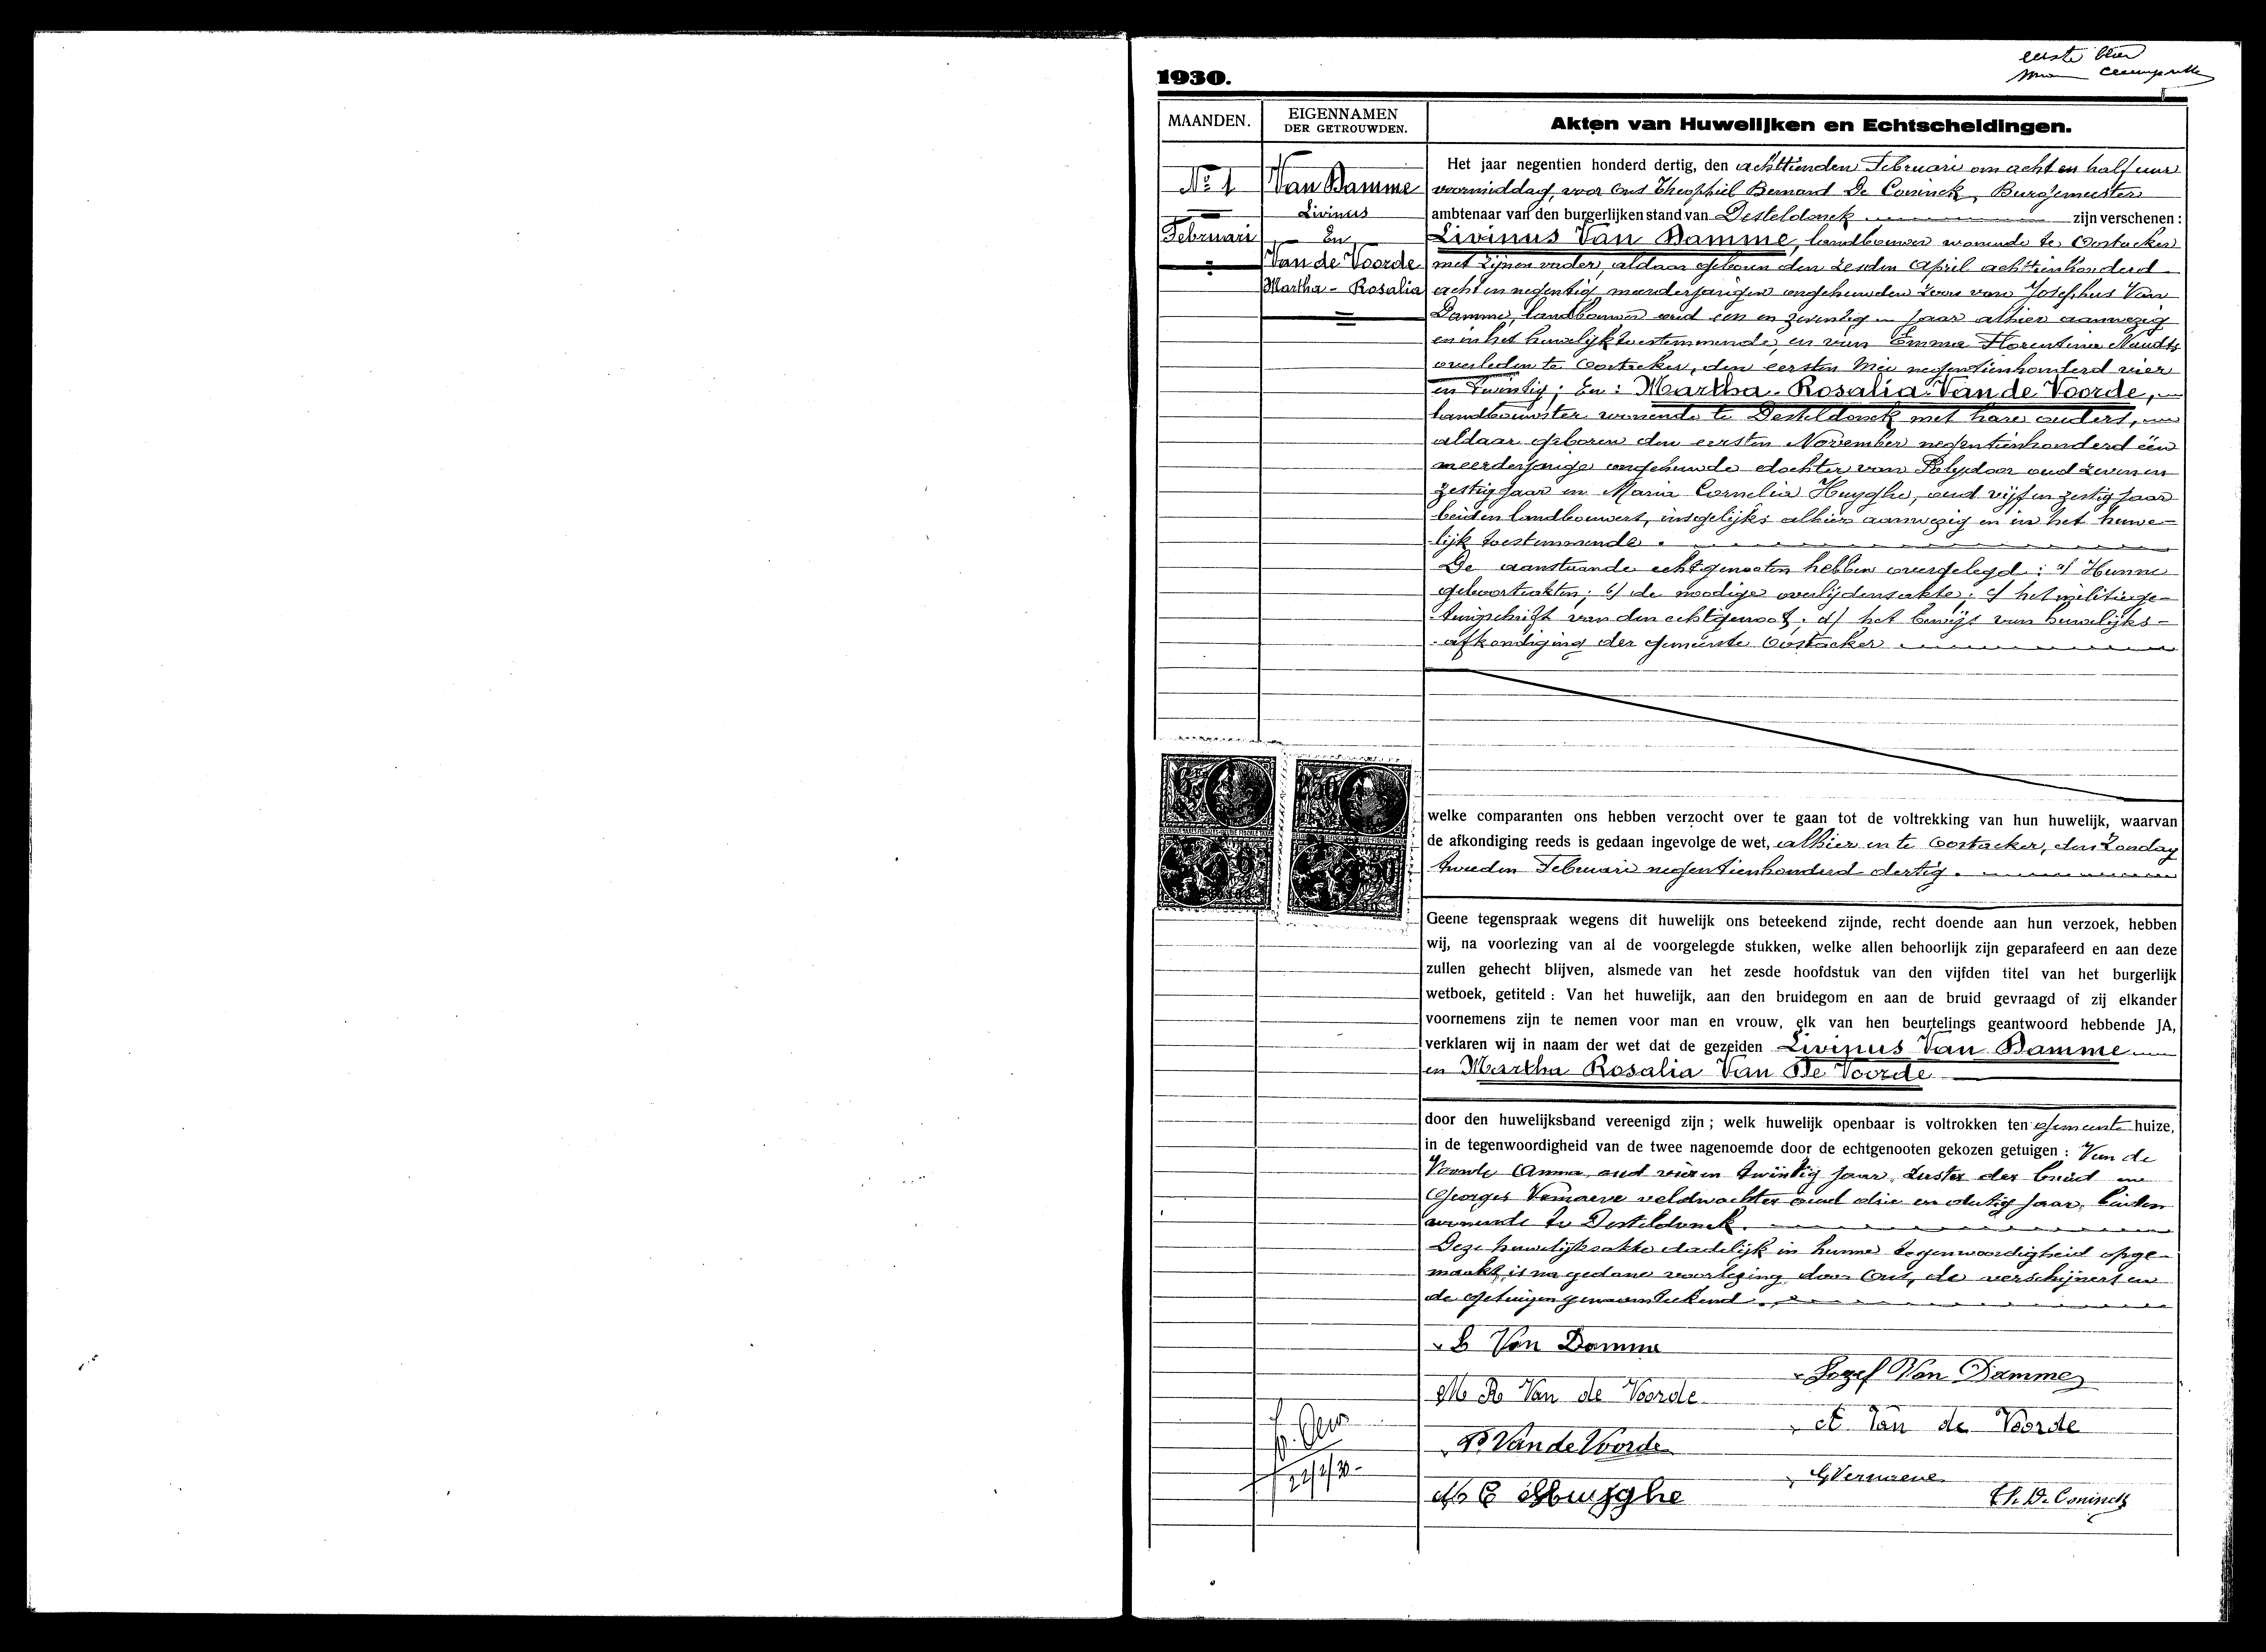 eerste blad
1930.
MAANDEN.
EIGENNAMEN
DER GETROUWDEN.
Akten van Huwelijken en Echtscheidingen.
No 1
Februari
Van Damme
Livinus
En
Van de Voorde
Martha - Rosalia
Het jaar negentien honderd dertig, den achttienden Februari om acht en half uur
voormiddag, voor Ons Theophiel Bernard De Coninck, Burgemeester
ambtenaar van den burgerlijken stand van Desteldonck zijn verschenen :
Livinus Van Damme, landbouwer wonende te Oostacker
met zijnen vader, aldaar geboren den zesden April achttienhonderd
acht en negentig meerderjarigen ongehuwden zoon van Josephus Van
Damme, landbouwer oud een en zeventig jaar alhier aanwezig
en in het huwelijk toestemmende, en van Emma Florentina Naudts
overleden te Oostacker, den eersten Mei negentienhonderd vier
en twintig; En : Martha - Rosalia Van de Voorde,
landbouwster wonende te Desteldonck met hare ouders,
aldaar geboren den eersten November negentienhonderd één
meerderjarige ongehuwde dochter van Polydoor oud zeven en
zestig jaar en Maria Cornelia Huyghe, oud vijf en zestig jaar
beiden landbouwers, insgelijks alhier aanwezig en in het huwe-
lijk toestemmende.
De aanstaande echtgenooten hebben overgelegd : a) Hunne
geboorteakten; b) de noodige overlijdensakte; c) het militiege-
tuigschrift van den echtgenoot; d) het bewijs van huwelijks-
afkondiging der gemeente Oostacker
welke comparanten ons hebben verzocht over te gaan tot de voltrekking van hun huwelijk, waarvan
de afkondiging reeds is gedaan ingevolge de wet, alhier en te Oostacker, den Zondag
tweeden Februari negentienhonderd dertig.
Geene tegenspraak wegens dit huwelijk ons beteekend zijnde, recht doende aan hun verzoek, hebben
wij, na voorlezing van al de voorgelegde stukken, welke allen behoorlijk zijn geparafeerd en aan deze
zullen gehecht blijven, alsmede van het zesde hoofdstuk van den vijfden titel van het burgerlijk
wetboek, getiteld : Van het huwelijk, aan den bruidegom en aan de bruid gevraagd of zij elkander
voornemens zijn te nemen voor man en vrouw, elk van hen beurtelings geantwoord hebbende JA,
verklaren wij in naam der wet dat de gezeiden Livinus Van Damme
en Martha Rosalia Van De Voorde
door den huwelijksband vereenigd zijn ; welk huwelijk openbaar is voltrokken ten gemeente huize,
in de tegenwoordigheid van de twee nagenoemde door de echtgenooten gekozen getuigen : Van de
Voorde Anna, oud vier en twintig jaar, zuster der bruid en
Georges Vernaeve veldwachter oud drie en dertig jaar, beiden
wonende te Desteldonck.
Deze huwelijksakte dadelijk in hunne tegenwoordigheid opge-
maakt, is na gedane voorlezing door Ons, de verschijners en
de getuigen genaamteekend.
L Van Damme
Jozef Van Damme
M R Van de Voorde
A Van de Voorde
P. Van de Voorde
G Vernaeve
M C Huyghe
Th. De Coninck